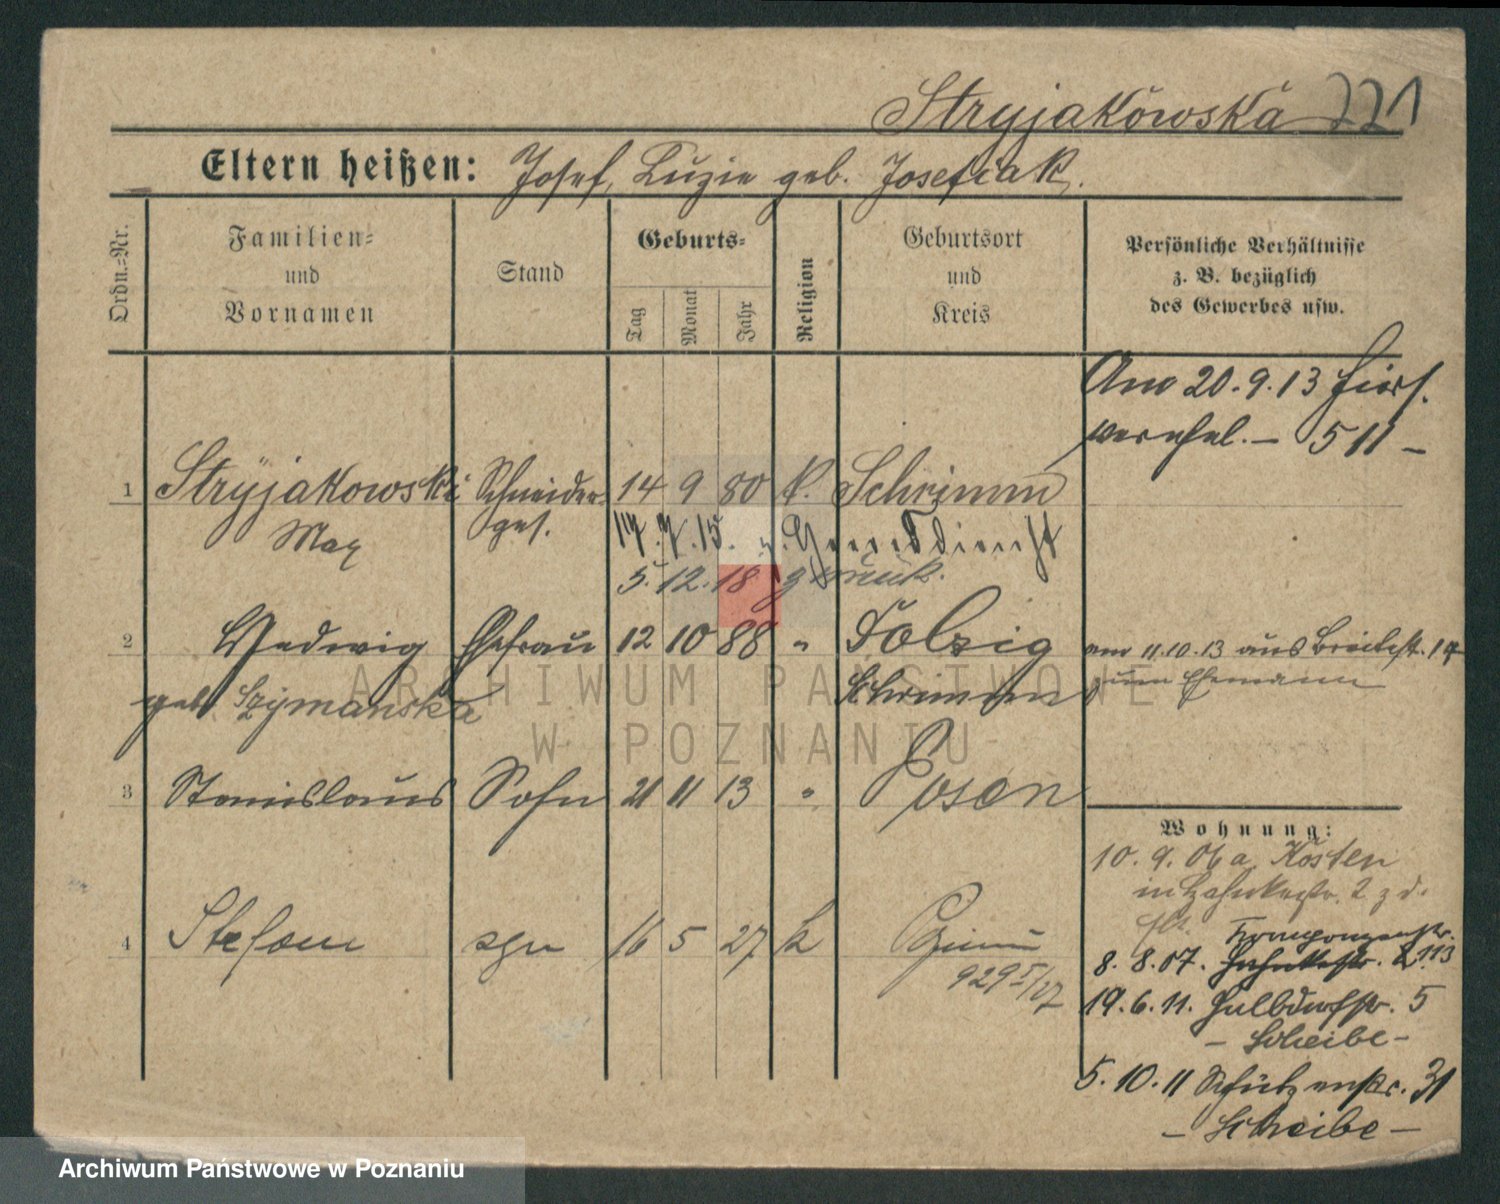 Stryjakowska 221
Eltern heißen: Josef, Luzie geb. Josefiak.
Ordn.-Nr.
Familien-
und
Vornamen
Stand
Geburts-
Tag
Monat
Jahr
Religion
Geburtsort
und
Kreis
Persönliche Verhältnisse
z. B. bezüglich
des Gewerbes usw.
Am 20.9.13 hier
verehel. – 511 –
1 Stryjakowski Schneider- 14 9 80 k. Schrimm
Max ges.
17.7.15. z.
5.12.18 zurück.
2 Hedwig Ehefrau 12 10 88 "
Schrimm
geb Szymanska
am 11.10.13 aus Breitestr. 14
zum Ehemann
3 Stanislaus Sohn 21 11 13 " Posen
4 Stefan syn 16 5 27 k
929 I/27
Wohnung:
10.9.06 a. Kosten
in 2 z d.
8.8.07.
19.6.11. Halbdorfstr. 5
– Scheibe –
5.10.11 Schützenstr. 31
– Scheibe –
ARCHIWUM PAŃSTWOWE
W POZNANIU
Archiwum Państwowe w Poznaniu